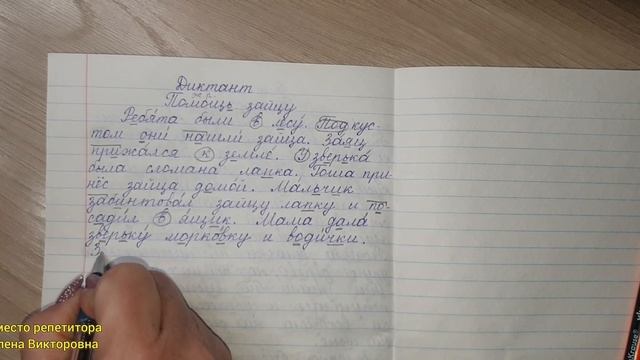 Диктант
Помощь зайцу
Ребята были в лесу. Под кус-
том они нашли зайца. Заяц
прижался к земле. У зверька
была сломана лапка. Гоша при-
нёс зайца домой. Мальчик
забинтовал зайцу лапку и по-
садил в ящик. Мама дала
зверьку морковку и водички.
место репетитора
лена Викторовна